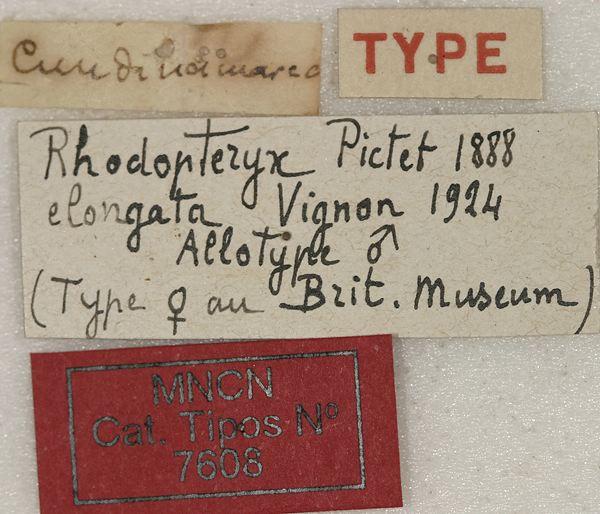 Cundinamarca
TYPE
Rhodopteryx Pictet 1888
elongata Vignon 1924
Allotype ♂
(Type ♀ au Brit. Museum)
MNCN
Cat. Tipos Nº
7608